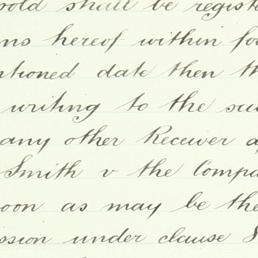 shall be regist
hereof within fo
ntioned date then th
writing to the su
any other Receiver a
Smith v the Compa
oon as may be the
ssion under clause 8